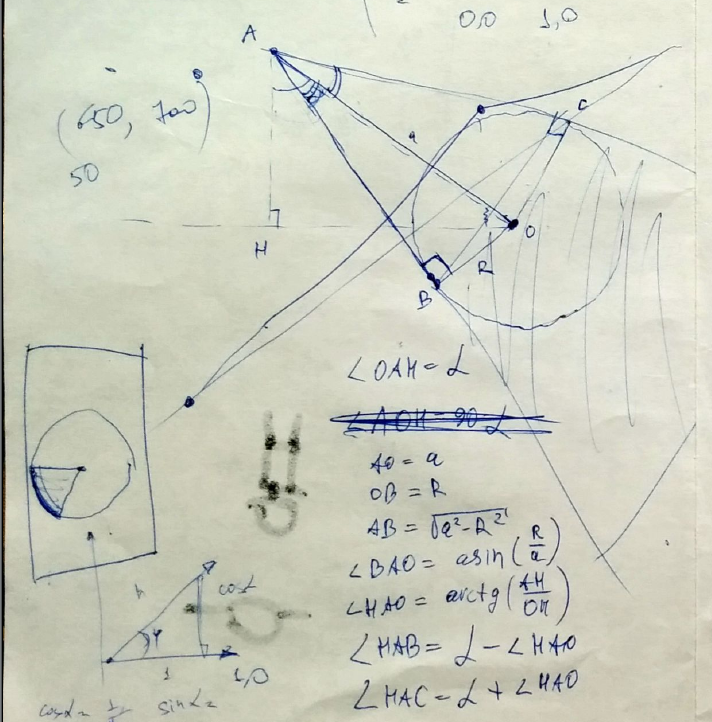 0,0 1,0
A
(650, 700)
50
C
a
O
H
R
B
∠OAH = α
∠AOH = 90 α
AO = a
OB = R
AB = √a²-R²
∠BAO = asin(R/a)
∠HAO = arctg(AH/OH)
∠HAB = α - ∠HAO
∠HAC = α + ∠HAO
h
cosα
φ
1
1,0
cosα = 
sinα =